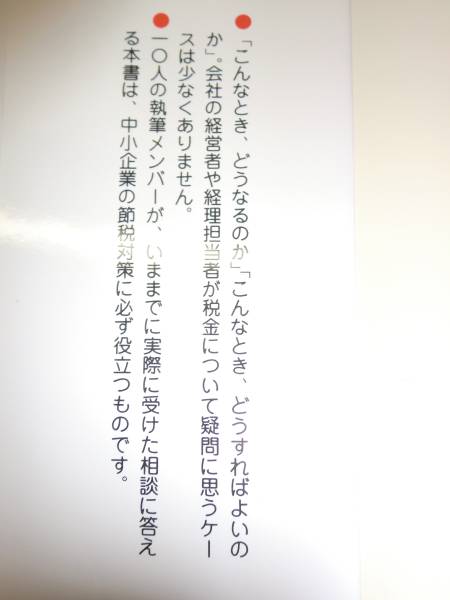 ●「こんなとき、どうなるのか」「こんなとき、どうすればよいの
か」。会社の経営者や経理担当者が税金について疑問に思うケー
スは少なくありません。
●一〇人の執筆メンバーが、いままでに実際に受けた相談に答え
る本書は、中小企業の節税対策に必ず役立つものです。